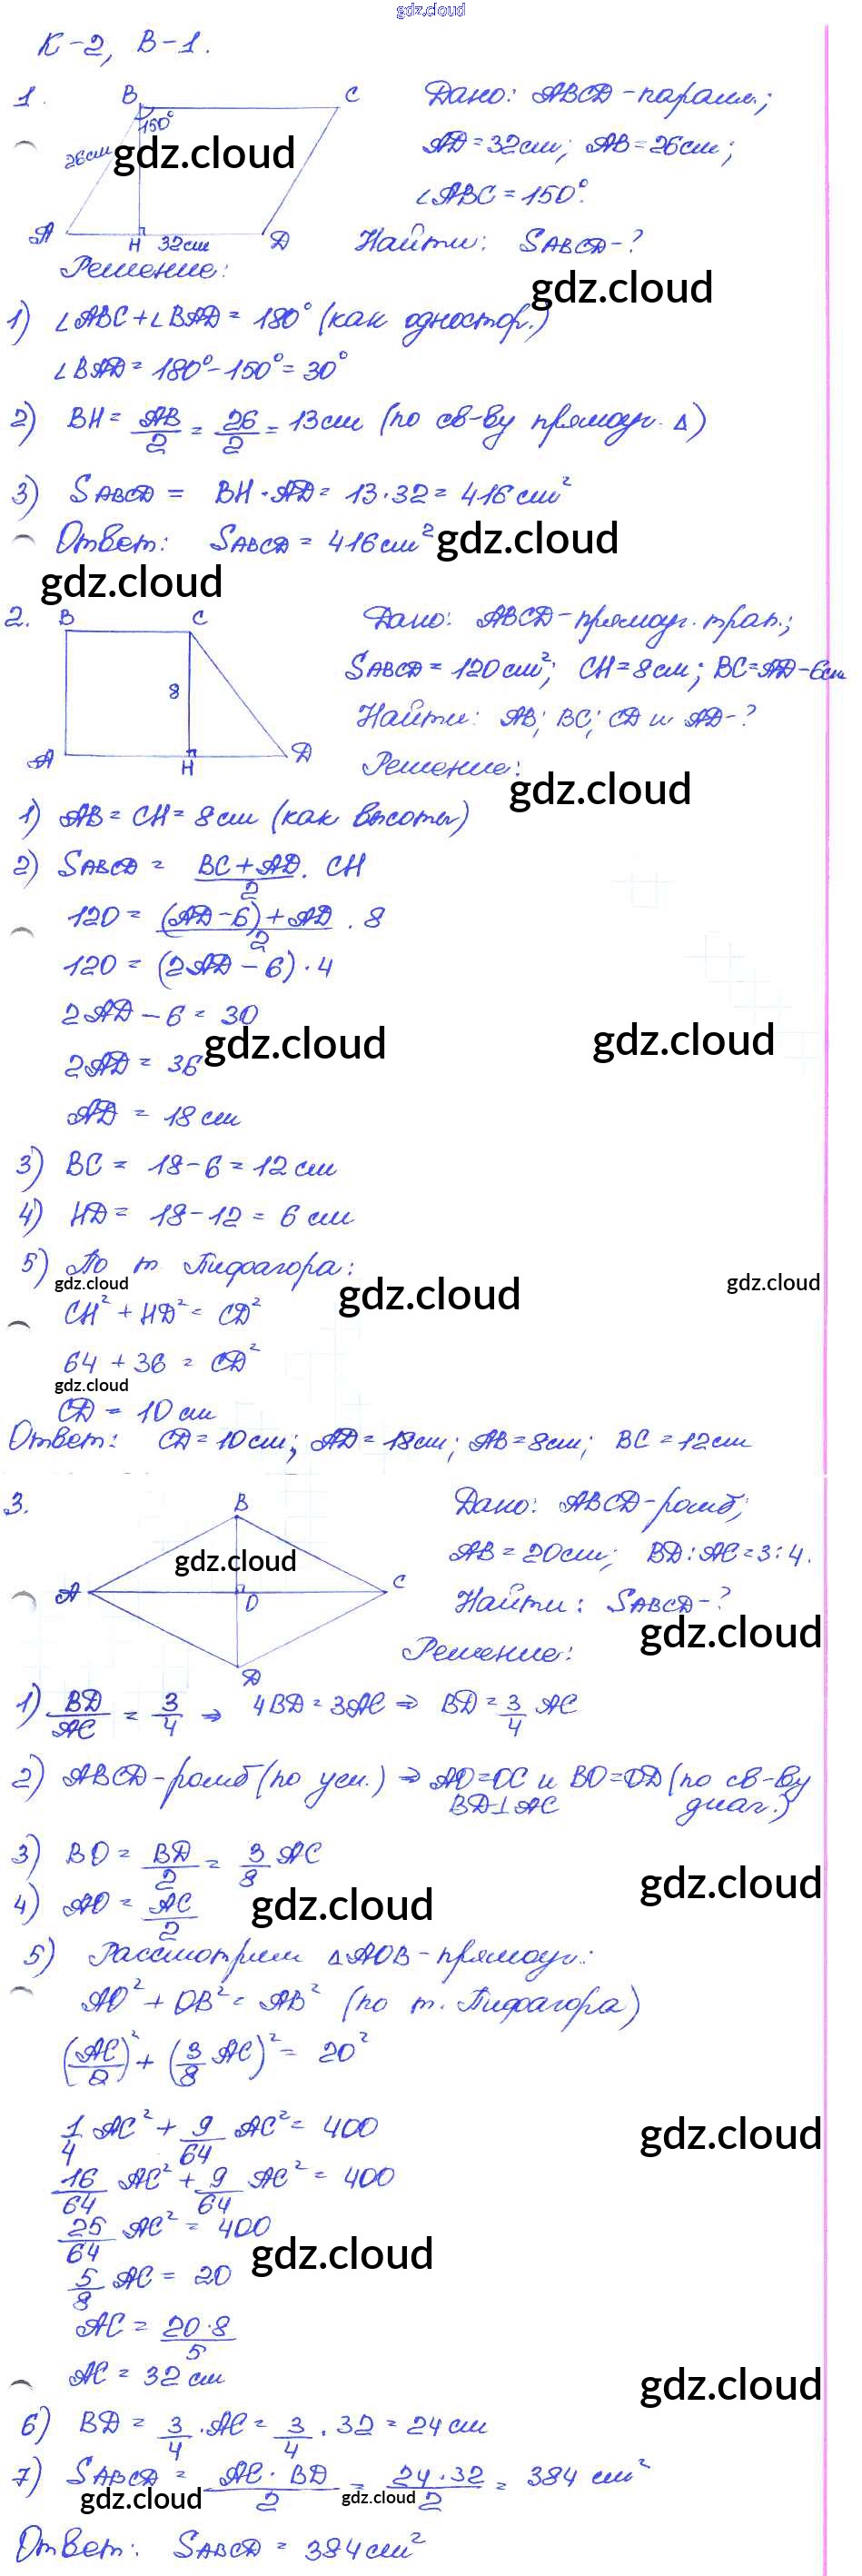 gdz.cloud
К-2, В-1.
1.
B
C
150°
26см
A
H
32см
D
Дано: ABCD-паралл.;
AD=32см; AB=26см;
∠ABC=150°.
Найти: SABCD-?
gdz.cloud
Решение:
gdz.cloud
1) ∠ABC+∠BAD=180° (как одностор.)
∠BAD=180°-150°=30°
2) BH= AB/2 = 26/2 = 13см (по св-ву прямоуг. Δ)
3) SABCD = BH·AD=13·32=416см²
Ответ: SABCD=416см²
gdz.cloud
gdz.cloud
2.
B
C
8
A
H
D
Дано: ABCD-прямоуг. трап.;
SABCD=120см²; CH=8см; BC=AD-6см
Найти: AB; BC; CD и AD-?
Решение:
gdz.cloud
1) AB=CH=8см (как высоты)
2) SABCD = (BC+AD)/2 · CH
120 = ((AD-6)+AD)/2 · 8
120 = (2AD-6)·4
2AD-6=30
gdz.cloud
gdz.cloud
2AD = 36
AD = 18см
3) BC = 18-6=12см
4) HD = 18-12=6см
5) По т. Пифагора:
gdz.cloud
gdz.cloud
gdz.cloud
CH²+HD²=CD²
64+36=CD²
gdz.cloud
CD=10см
Ответ: CD=10см; AD=18см; AB=8см; BC=12см
3.
B
A
C
O
D
gdz.cloud
Дано: ABCD-ромб;
AB=20см; BD:AC=3:4.
Найти: SABCD-?
gdz.cloud
Решение:
1) BD/AC = 3/4 ⇒ 4BD=3AC ⇒ BD=3/4 AC
2) ABCD-ромб (по усл.) ⇒ AO=OC и BO=OD (по св-ву
BD⊥AC диаг.)
3) BO = BD/2 = 3/8 AC
gdz.cloud
4) AO = AC/2
gdz.cloud
5) Рассмотрим ΔAOB-прямоуг.:
AO²+OB²=AB² (по т. Пифагора)
(AC/2)²+(3/8 AC)²=20²
1/4 AC²+9/64 AC²=400
gdz.cloud
16/64 AC²+9/64 AC²=400
25/64 AC²=400
gdz.cloud
5/8 AC=20
AC=20·8/5
AC=32см
gdz.cloud
6) BD = 3/4·AC=3/4·32=24см
7) SABCD = AC·BD/2 = 24·32/2 = 384 см²
gdz.cloud
gdz.cloud
Ответ: SABCD=384см²